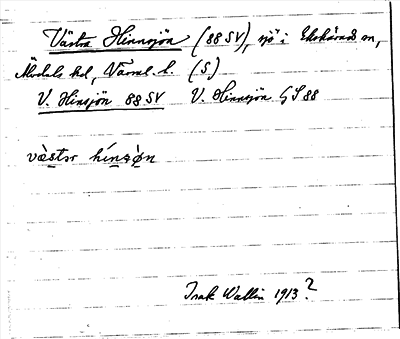 Västra Hinnsjön (88 SV), sjö i Ekshärads sn,
Älvdals hd, Värml. l. (S)
V. Hinsjön 88 SV V. Hinnsjön GS 88
væ̀stɔr hínsȯ̀n
Isak Wallin 1913?